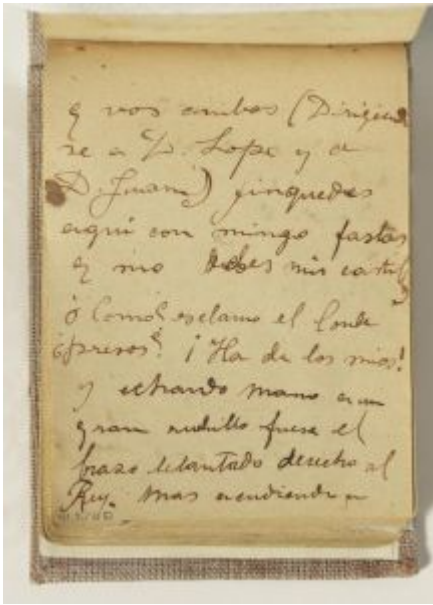 q vos ambos (Dirigiend
se a D. Lope y a
D. Juan) finquedes
aquí con migo fastas
q me dedes mis castill
ó Como? esclamo el Conde
ó presos? ¡Ha de los mios!
y echando mano a un
gran cuchillo fuese el
brazo lebantado derecho al
Rey. Mas acudiendo a